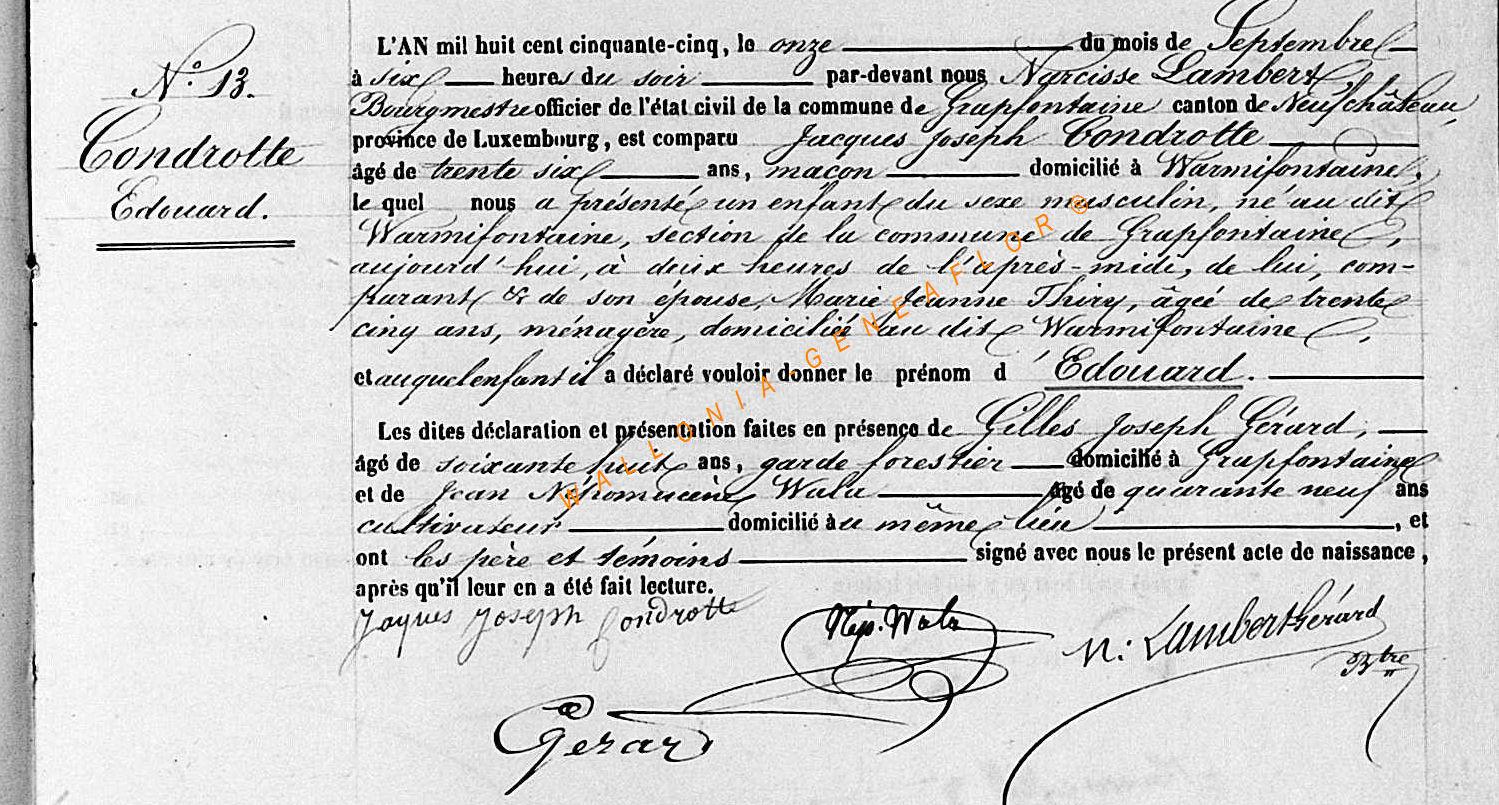 N.° 13.
Condrotte
Edouard.
L'AN mil huit cent cinquante-cinq, le onze du mois de Septembre
à six heures du soir par-devant nous Narcisse Lambert,
Bourgmestre officier de l'état civil de la commune de Grapfontaine canton de Neufchâteau,
province de Luxembourg, est comparu Jacques Joseph Condrotte
âgé de trente six ans, maçon domicilié à Warmifontaine,
le quel nous a présenté un enfant du sexe masculin, né au dit
Warmifontaine, section de la commune de Grapfontaine,
aujourd'hui, à deux heures de l'après-midi, de lui, com-
parant & de son épouse, Marie Jeanne Thiry, âgée de trente
cinq ans, ménagère, domiciliée au dit Warmifontaine,
et auquel enfant il a déclaré vouloir donner le prénom d'Edouard.
Les dites déclaration et présentation faites en présence de Gilles Joseph Gérard,
âgé de soixante huit ans, garde forestier domicilié à Grapfontaine
et de Jean Néhomucène Wala âgé de quarante neuf ans
cultivateur domicilié au même lieu, et
ont les père et témoins signé avec nous le présent acte de naissance,
après qu'il leur en a été fait lecture.
Jaques Joseph Condrotte
Nép. Wala
N. Lambert Gérard
Btre
Gérard
WALLONIA-GENEAFLOR ©